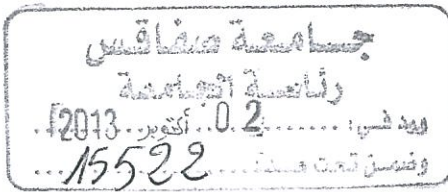 جامعة صفاقس
رئاسة الجامعة
ورد في: 02 أكتوبر 2013
وضمن تحت عـ 15522